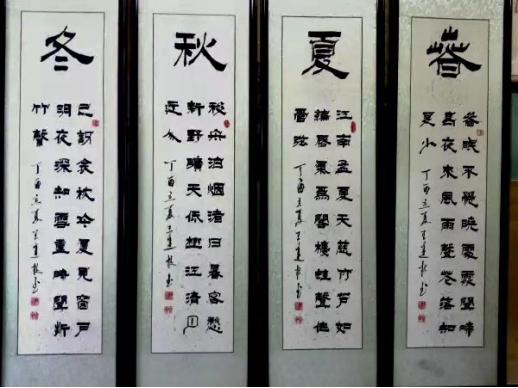 春
春眠不覺曉處處聞啼
鳥夜來風雨聲花落知
多少
丁酉立夏王建書
夏
江南孟夏天慈竹筍如
編蜃氣為閣樓蛙聲作
管弦
丁酉立夏王建書
秋
移舟泊烟渚日暮客愁
新野曠天低樹江清月
近人
丁酉立夏王建書
冬
已訝衾枕冷復見窗戶
明夜深知雪重時聞折
竹聲
丁酉立夏王建書